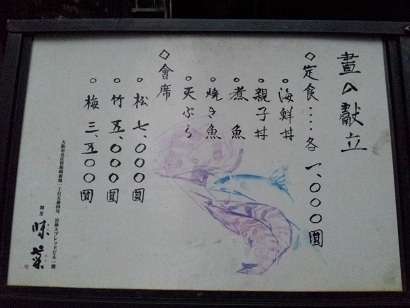 晝の献立
◇定食‥‥各一、〇〇〇圓
◦海鮮丼
◦親子丼
◦煮魚
◦焼き魚
◦天ぷら
◇會席
◦松 七、〇〇〇圓
◦竹 五、〇〇〇圓
◦梅 三、五〇〇圓
味菜